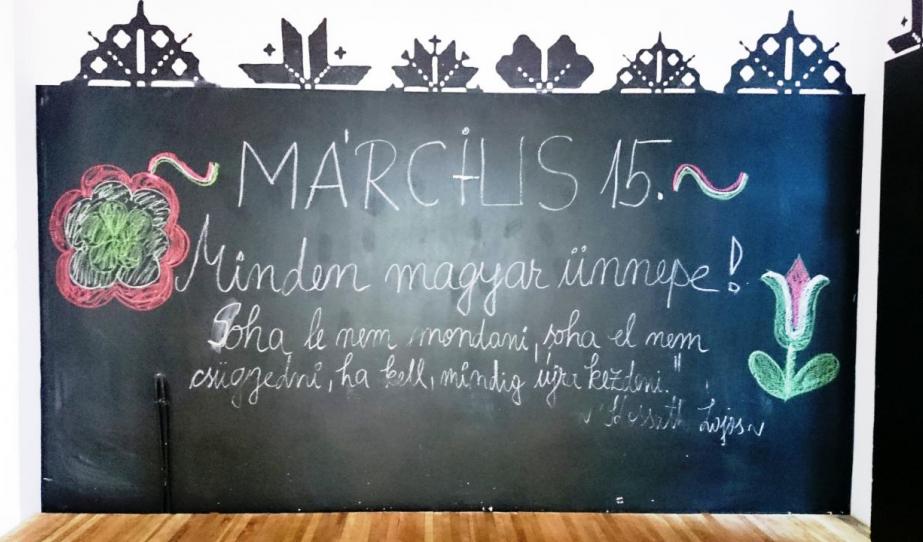 MÁRCIUS 15.
Minden magyar ünnepe!
Soha le nem mondani, soha el nem
csüggedni, ha kell, mindig újra kezdeni."
~ Kossuth Lajos ~